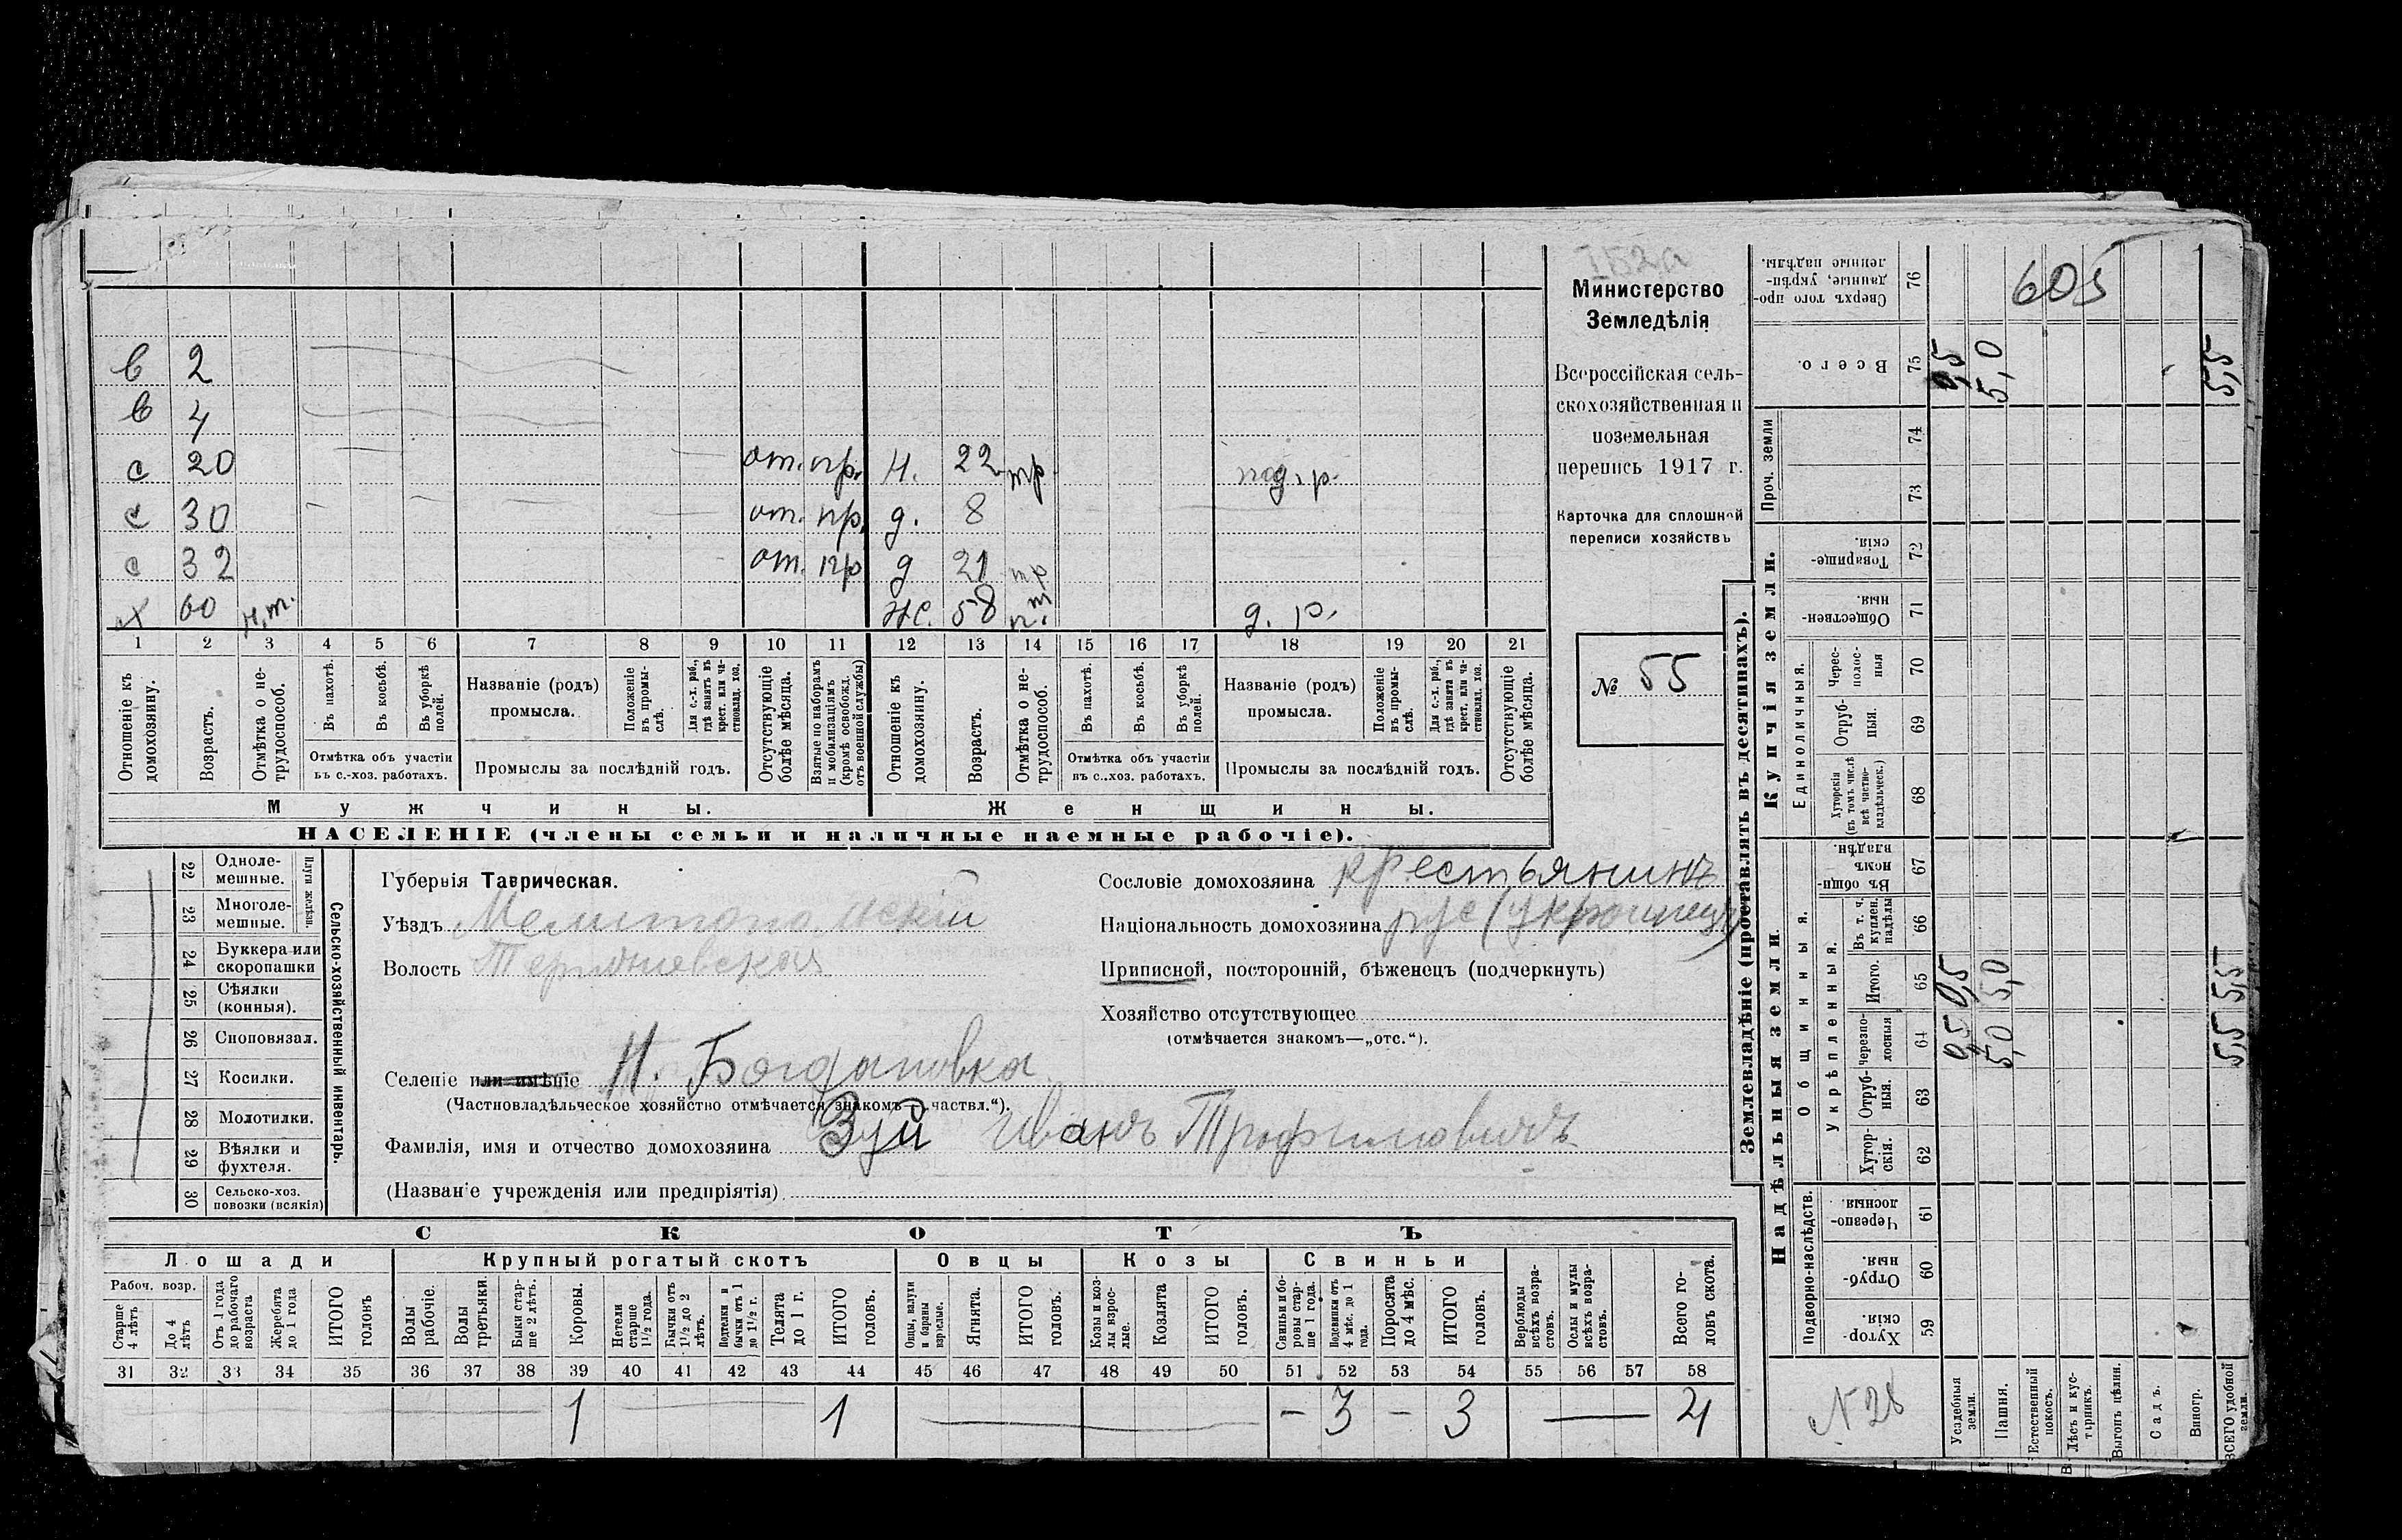 605
Министерство
Земледѣлія
Всероссійская сель-
скохозяйственная и
поземельная
перепись 1917 г.
Карточка для сплошной
переписи хозяйствъ
№ 55
в 2
в 4
с 20 от. пр. н. 22 тр. под. р.
с 30 от. пр. д. 8
с 32 от. пр д 21 тр
х 60 н.т. ж. 58 д. р.
1 2 3 4 5 6 7 8 9 10 11 12 13 14 15 16 17 18 19 20 21
Отношеніе къ домохозяину.
Возрастъ.
Отмѣтка о не-трудоспособ.
Въ пахотѣ.
Въ косьбѣ.
Въ уборкѣ полей.
Отмѣтка объ участіи въ с.-хоз. работахъ.
Названіе (родъ) промысла.
Положеніе въ промы-слѣ.
Для с.-х. раб., гдѣ занятъ въ крест. или ча-стновлад. хоз.
Промыслы за послѣдній годъ.
Отсутствующіе болѣе мѣсяца.
Взятые по наборамъ и мобилизаціямъ (кромѣ освобожд. отъ военной службы)
Отношеніе къ домохозяину.
Возрастъ.
Отмѣтка о не-трудоспособ.
Въ пахотѣ.
Въ косьбѣ.
Въ уборкѣ полей.
Отмѣтка объ участіи въ с.-хоз. работахъ.
Названіе (родъ) промысла.
Положеніе въ промы-слѣ.
Для с.-х. раб., гдѣ занята въ крест. или ча-стновлад. хоз.
Промыслы за послѣдній годъ.
Отсутствующіе болѣе мѣсяца.
Мужчины. Женщины.
НАСЕЛЕНІЕ (члены семьи и наличные наемные рабочіе).
22 Одноле-мешные.
23 Многоле-мешные.
Плуги желѣзн.
24 Буккера или скоропашки
25 Сѣялки (конныя).
26 Сноповязал.
27 Косилки.
28 Молотилки.
29 Вѣялки и фухтеля.
30 Сельско-хоз. повозки (всякія)
Сельско-хозяйственный инвентарь.
Губернія Таврическая.
Уѣздъ Мелитопольскій
Волость
Селеніе или имѣніе Н. Богдановка
(Частновладѣльческое хозяйство отмѣчается знакомъ—„частвл.“).
Фамилія, имя и отчество домохозяина Зуй Иванъ Трофимовичъ
(Названіе учрежденія или предпріятія)
Сословіе домохозяина крестьянинъ
Національность домохозяина рус (украинецъ)
Приписной, посторонній, бѣженецъ (подчеркнуть)
Хозяйство отсутствующее
(отмѣчается знакомъ—„отс.“).
СКОТЪ
Лошади Крупный рогатый скотъ Овцы Козы Свиньи
Рабоч. возр.
Старше 4 лѣтъ
До 4 лѣтъ
Отъ 1 года до рабочаго возраста
Жеребята до 1 года
ИТОГО головъ
Волы рабочіе.
Волы третьяки.
Быки стар-ше 2 лѣтъ.
Коровы.
Нетели старше 1½ года.
Бычки отъ 1½ до 2 лѣтъ.
Подтелки и бычки отъ 1 до 1½ г.
Телята до 1 г.
ИТОГО головъ.
Овцы, валухи и бараны взрослые.
Ягнята.
ИТОГО головъ.
Козы и коз-лы взрос-лые.
Козлята
ИТОГО головъ.
Свиньи и бо-ровы стар-ше 1 года.
Подсвинки отъ 4 мѣс. до 1 года.
Поросята до 4 мѣс.
ИТОГО головъ.
Верблюды всѣхъ возра-стовъ.
Ослы и мулы всѣхъ возра-стовъ.
Всего го-ловъ скота.
31 32 33 34 35 36 37 38 39 40 41 42 43 44 45 46 47 48 49 50 51 52 53 54 55 56 57 58
1 1 — — 3 — 3 — 4
Землевладѣніе (проставлять въ десятинахъ).
Купчія земли.
Надѣльныя земли.
Сверхъ того про-данные, укрѣп-ленные надѣлы. 76
Всего. 75 0,5 5,0 5,5
Проч. земли 74 73
Товарище-скія. 72
Обществен-ныя. 71
Единоличныя.
Черес-полос-ныя 70
Отруб-ныя. 69
Хуторскія (въ томъ числѣ всѣ частно-владѣльческ.) 68
Общинныя.
Въ общин-номъ владѣн. 67
Укрѣпленныя.
Въ т. ч. куплен. надѣлы 66
Итого. 65 0,5 5,0 5,5
Черезпо-лосныя 64 0,5 5,0 5,5
Отруб-ныя. 63
Хутор-скія. 62
Подворно-наслѣдств.
Черезпо-лосныя 61
Отруб-ныя. 60
Хутор-скія. 59
N 28
Усадебныя земли.
Пашня.
Естественный покосъ.
Лѣсъ и кус-тарникъ.
Выгонъ цѣлин.
Садъ.
Виногр.
ВСЕГО удобной земли.